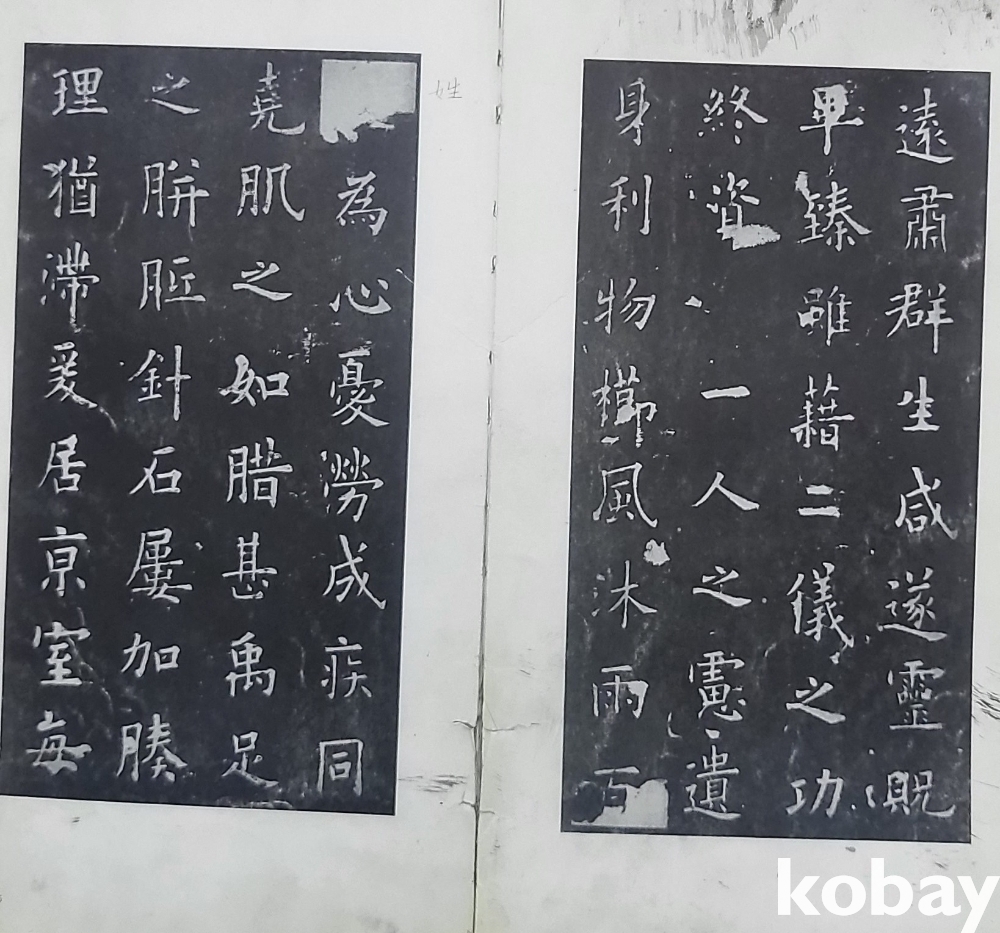 遠肅群生咸遂靈貺
畢臻雖藉二儀之功
終資一人之慮遺
身利物櫛風沐雨百
姓
為心憂勞成疾同
堯肌之如腊甚禹足
之胼胝針石屢加腠
理猶滯爰居京室每
kobay